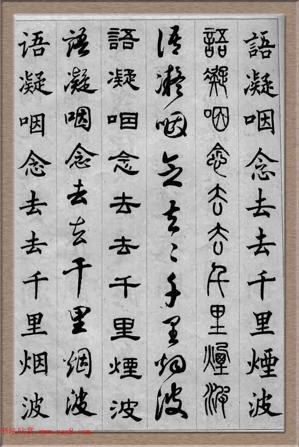 語凝咽念去去千里煙波
語凝咽念去去千里煙波
語凝咽念去去千里烟波
語凝咽念去去千里煙波
語凝咽念去去千里烟波
语凝咽念去去千里烟波